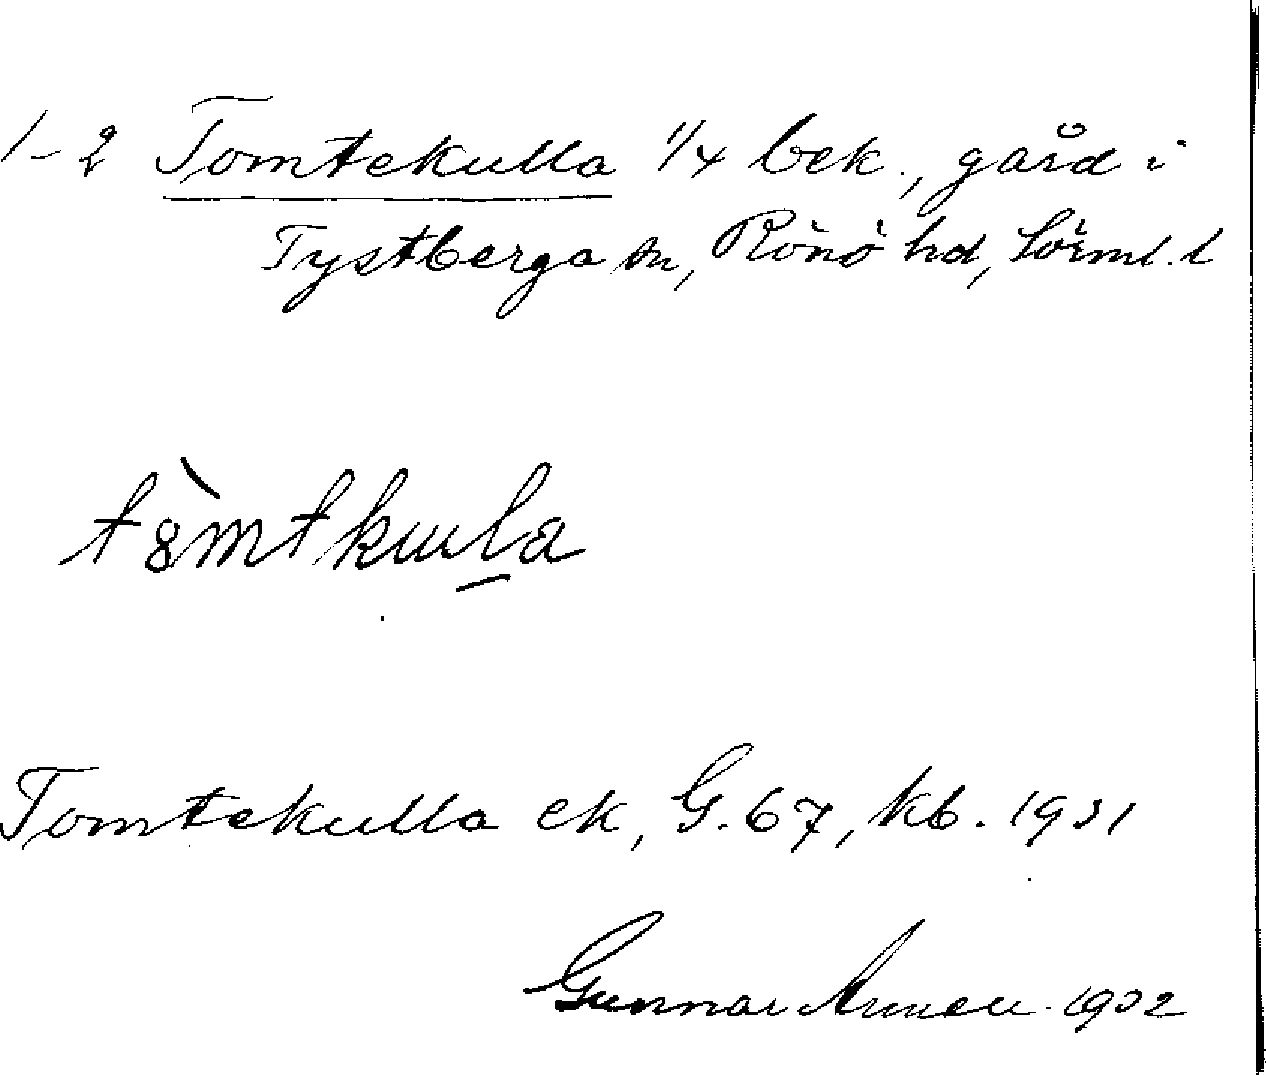 1-2 Tomtekulla 1/4 bek., gård i
Tystberga sn, Rönö hd, Sörml. l
Tomtekulla ek, G. 67, kb. 1931
Gunnar 1932